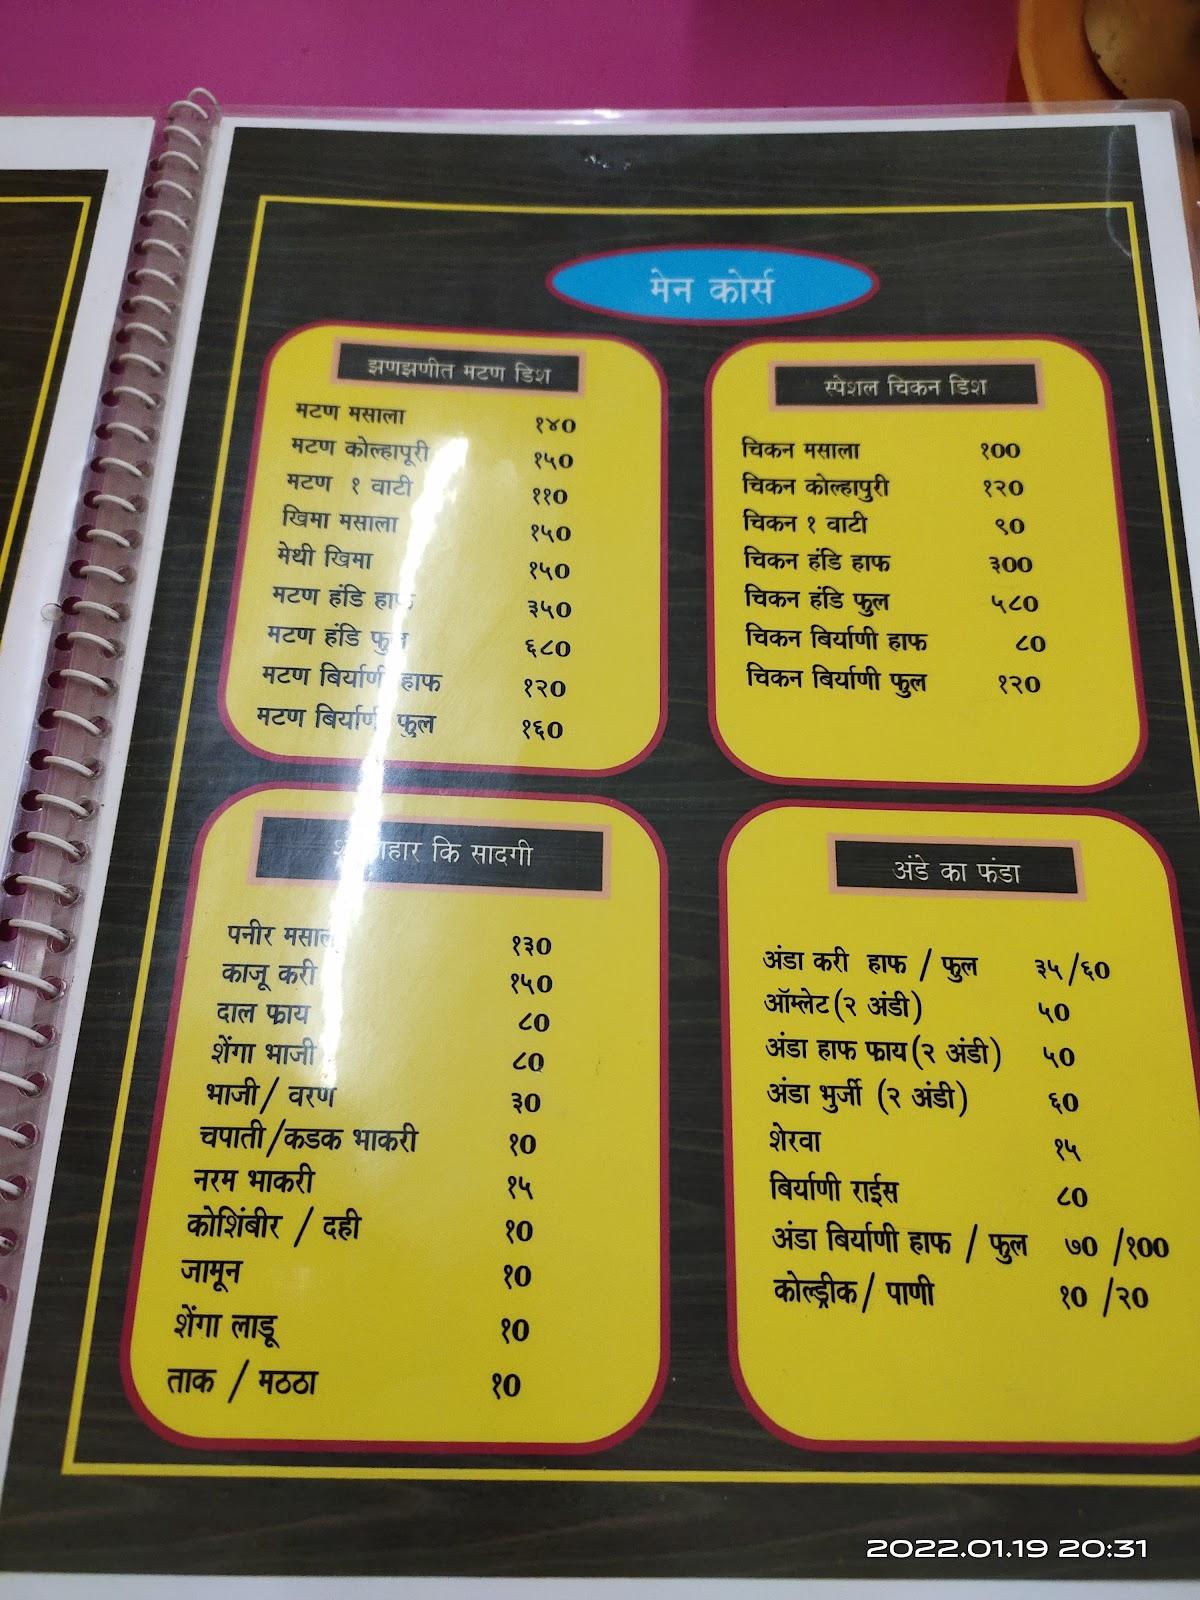 मेन कोर्स
झणझणीत मटण डिश
मटण मसाला १४०
मटण कोल्हापूरी १५०
मटण १ वाटी ११०
खिमा मसाला १५०
मेथी खिमा १५०
मटण हंडि हाफ ३५०
मटण हंडि फुल ६८०
मटण बिर्याणी हाफ १२०
मटण बिर्याणी फुल १६०
स्पेशल चिकन डिश
चिकन मसाला १००
चिकन कोल्हापुरी १२०
चिकन १ वाटी ९०
चिकन हंडि हाफ ३००
चिकन हंडि फुल ५८०
चिकन बिर्याणी हाफ ८०
चिकन बिर्याणी फुल १२०
कि सादगी
पनीर मसाला १३०
काजू करी १५०
दाल फ्राय ८०
शेंगा भाजी ८०
भाजी / वरण ३०
चपाती /कडक भाकरी १०
नरम भाकरी १५
कोशिंबीर / दही १०
जामून १०
शेंगा लाडू १०
ताक / मठठा १०
अंडे का फंडा
अंडा करी हाफ / फुल ३५ /६०
ऑम्लेट (२ अंडी) ५०
अंडा हाफ फ्राय (२ अंडी) ५०
अंडा भुर्जी (२ अंडी) ६०
शेरवा १५
बिर्याणी राईस ८०
अंडा बिर्याणी हाफ / फुल ७० /१००
कोल्ड्रीक / पाणी १० /२०
2022.01.19 20:31